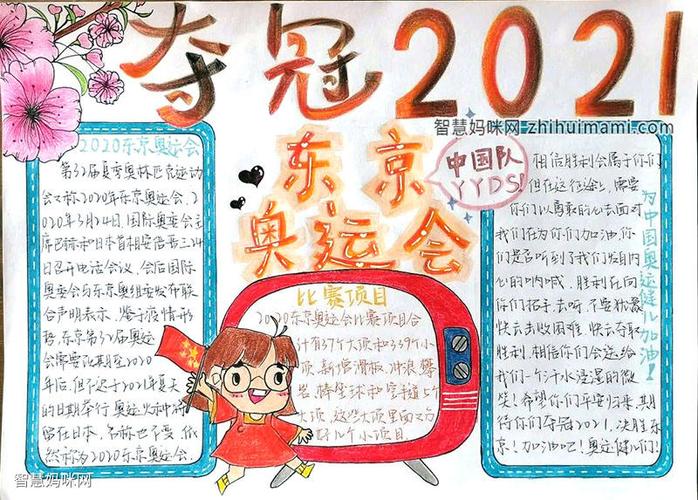 夺冠2021
智慧妈咪网 zhihuimami.com
东京
奥运会
中国队
YYDS!
2020东京奥运会
第32届夏季奥林匹克运动
会又称2020年东京奥运会.2
020年3月24日.国际奥委会主
席巴赫和日本首相安倍晋三24
日召开电话会议.会后国际
奥委会与东京奥组委发布联
合声明表示.鉴于疫情形
势.东京第32届奥运
会需要改期至2020
年后.但不迟于2021年夏天
的日期举行.奥运火种将
留在日本.名称也不变.依
然称为2020东京奥运会.
比赛项目
2020东京奥运会比赛项目合
计有37个大项和339个小
项.新增滑板.冲浪.攀
岩.棒垒球和空手道5个
大项.这些大项里面又分
好几个小项目.
相信胜利会属于你们
但在这征途上.需要
你们以勇敢的心去面对
我们在为你们加油.你
们是否听到了我们发自内
心的呐喊.胜利在向
你们招手.去呀.不要犹豫
快去击败困难.快去夺取
胜利.相信你们会送给
我们一个汗水浸湿的微
笑!希望你们平安归来.期
待你们夺冠2021.决胜东
京!加油吧!奥运健儿们!
为中国奥运健儿加油!
智慧妈咪网